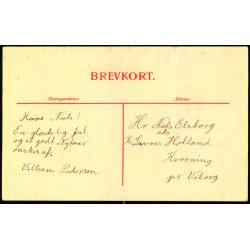 BREVKORT.
Korrespondance.
Adresse.
Kære Niels!
En glædelig jul
og et godt Nytaar
ønskes af.
Villiam Pedersen
Hr Niels Elsborg
Holland
Kvorning
pr Viborg